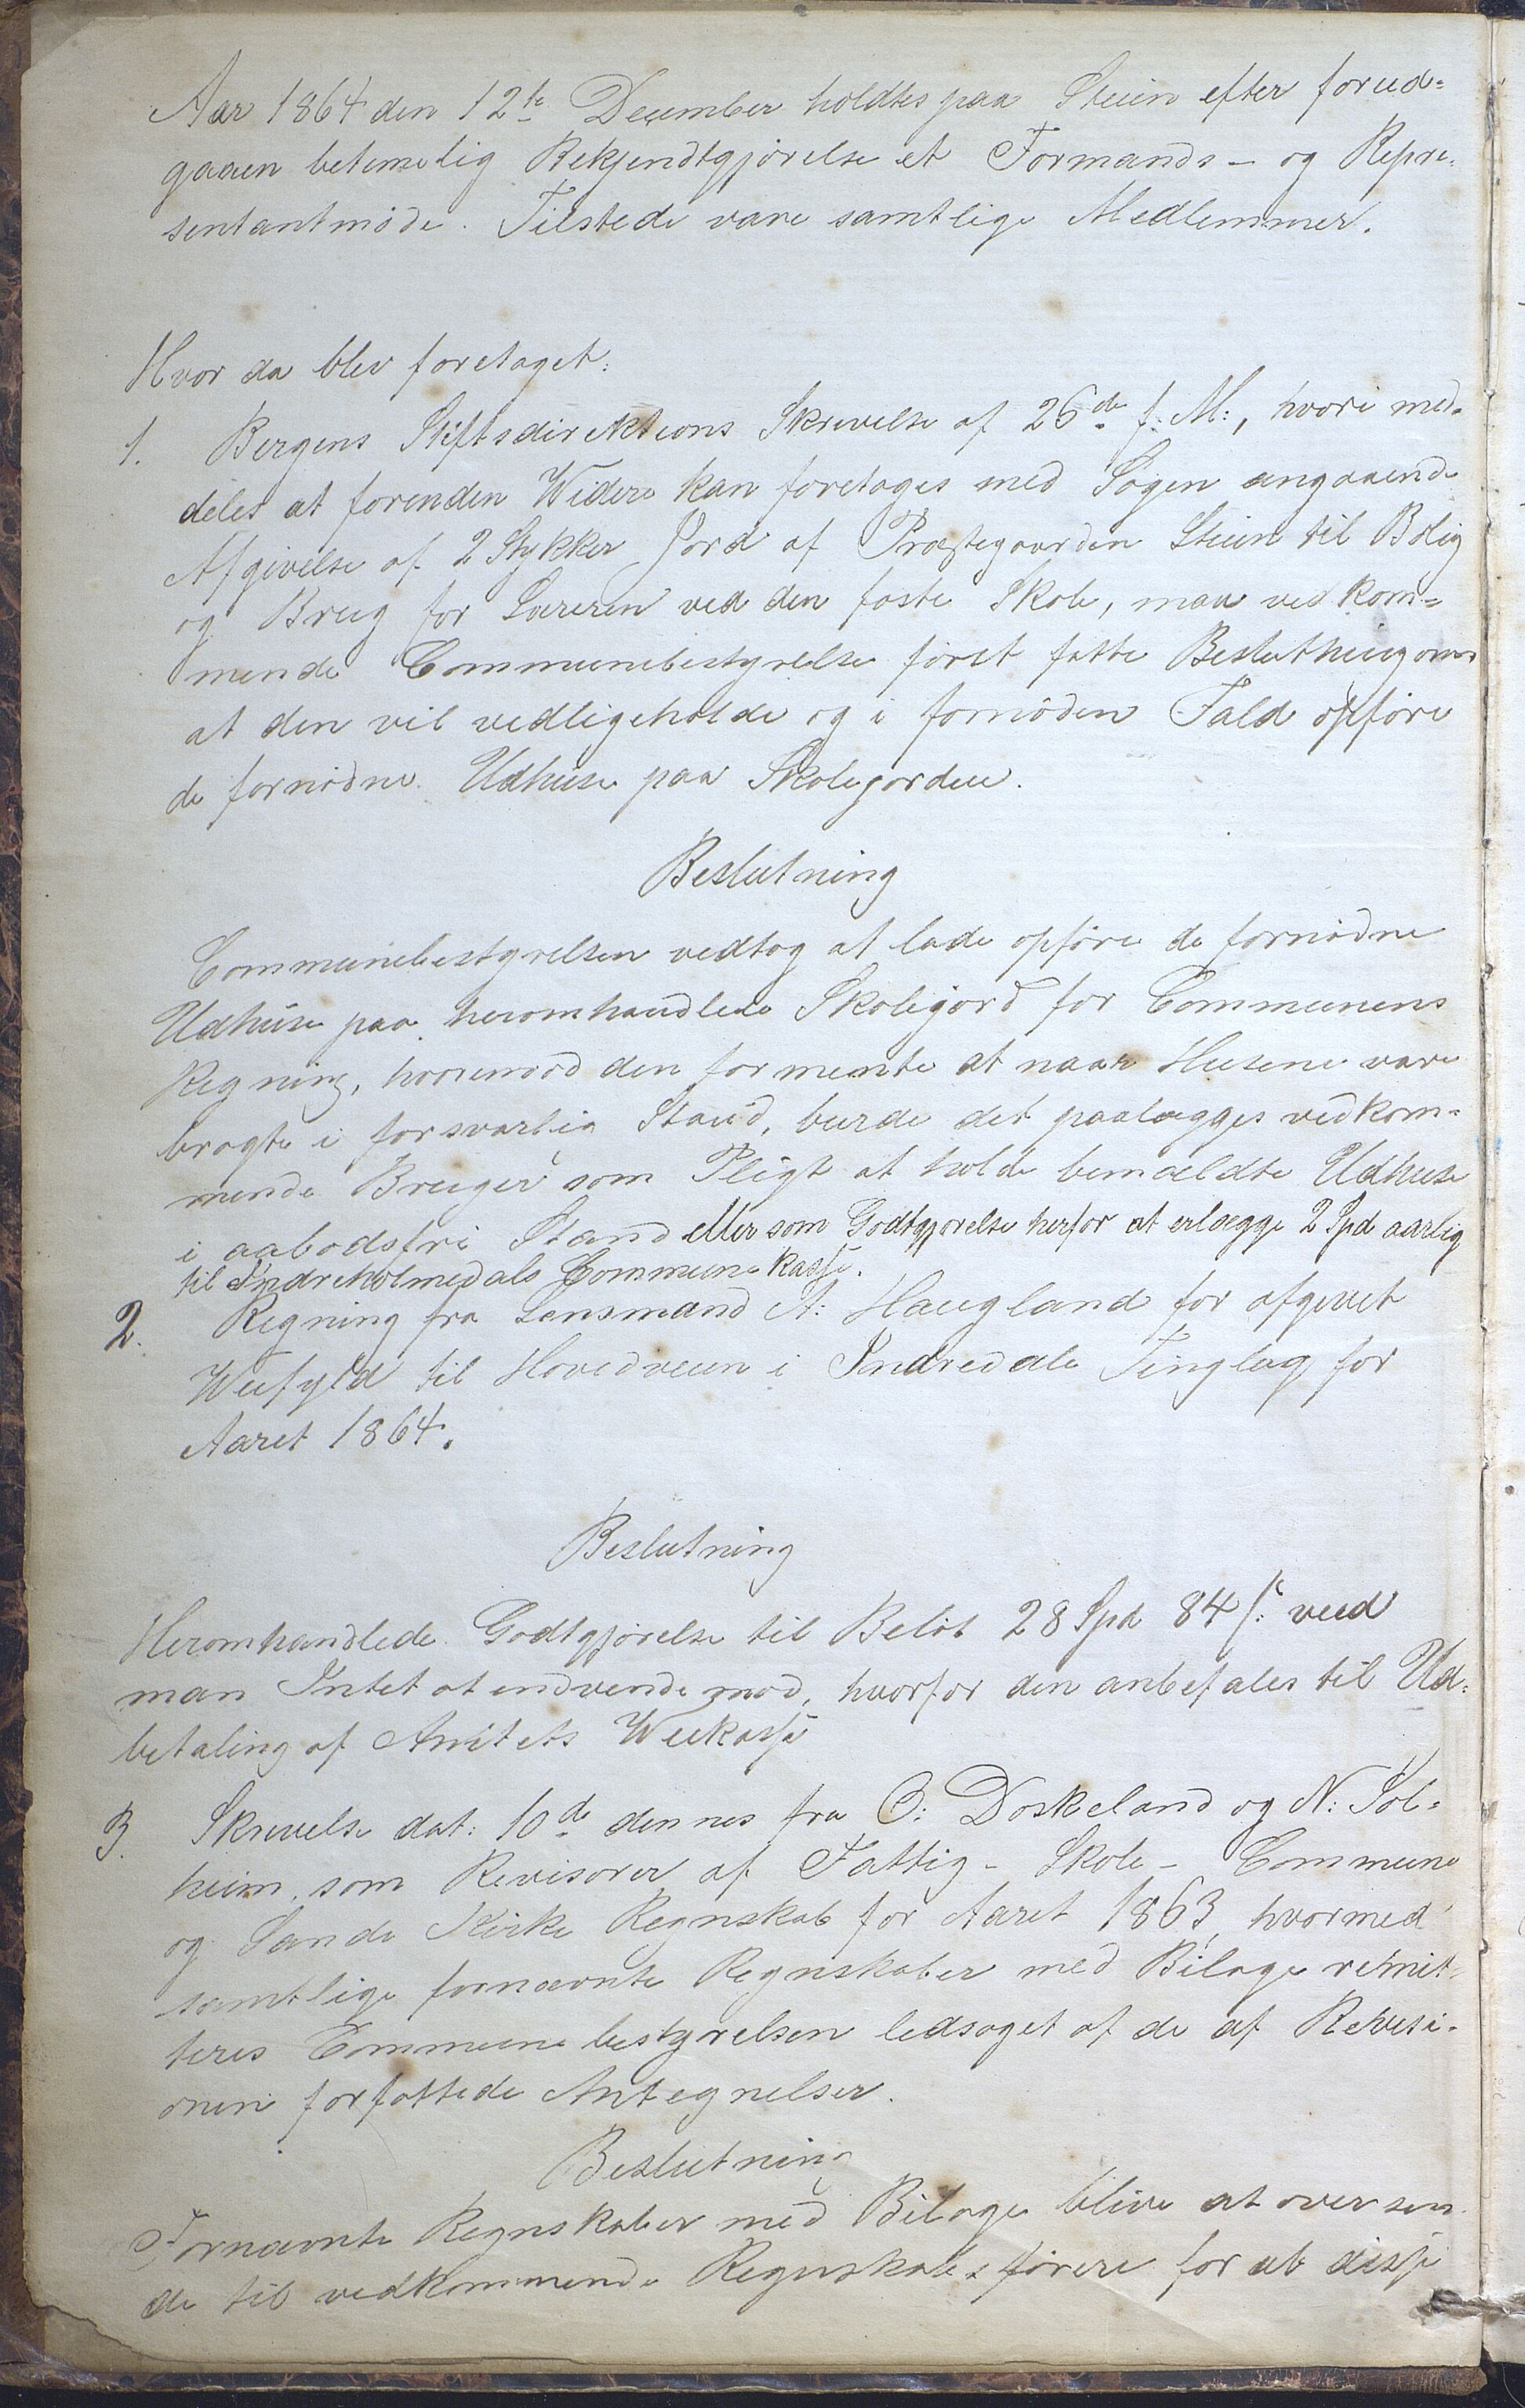 Aar 1864 den 12te December holdtes paa Steien efter forud=
gaaen betimelig Bekjendtgjørelse et Formands- og Repre-
sentantmøde. Tilstede vare samtlige Medlemmer.
Hvor da blev foretaget:
1. Bergens Stiftsdirektions Skrivelse af 26de f: M:, hvori med-
deles at forenden Widere kan foretages med Sagen angaaende
Afgivelse af 2 Stykker Jord af Præstegaarden Steien til Bolig
og Brug for Læreren ved den faste Skole, maa vedkom=
mende Communebestyrelse først fatte Beslutning om
at den vil vedligeholde og i fornøden Fald opføre
de fornødne Udhuse paa Skolejorden.
Beslutning
Communebestyrelsen vedtog at lade opføre de fornødne
Udhuse paa heromhandlede Skolejord for Communens
Regning, hvorimod den formente at naar Husene vare
bragte i forsvarlig Stand, burde det paalægges vedkom-
mende Bruger som Pligt at holde bemældte Udhuse
i aabodsfri Stand eller som Godtgjørelse herfor at erlægge 2 Spd aarlig
til Indreholmedals Commune Kasse.
2. Regning fra Lensmand A: Haugland for afgivet
Veifyld til Hovedveien i Indredale Tinglag for
Aaret 1864.
Beslutning
Heromhandlede Godtgjørelse til Beløb 28 Spd 84 s: veed
man Intet at indvende mod, hvorfor den anbefales til Ud=
betaling af Amtets Veikasse
3. Skrivelse dat: 10de dennes fra O: Døskeland og N: Sol=
heim, som Revisorer af Fattig- Skole- Commune
og Sande Kirke Regnskab for Aaret 1863, hvormed
samtlige fornævnte Regnskaber med Bilage remit-
teres Communebestyrelsen ledsaget af de af Revisi-
onen forfattede Antegnelser.
Beslutning
Fornævnte Regnskaber med Bilage blive at oversen
de til vedkommende Regnskabsførere for at disse